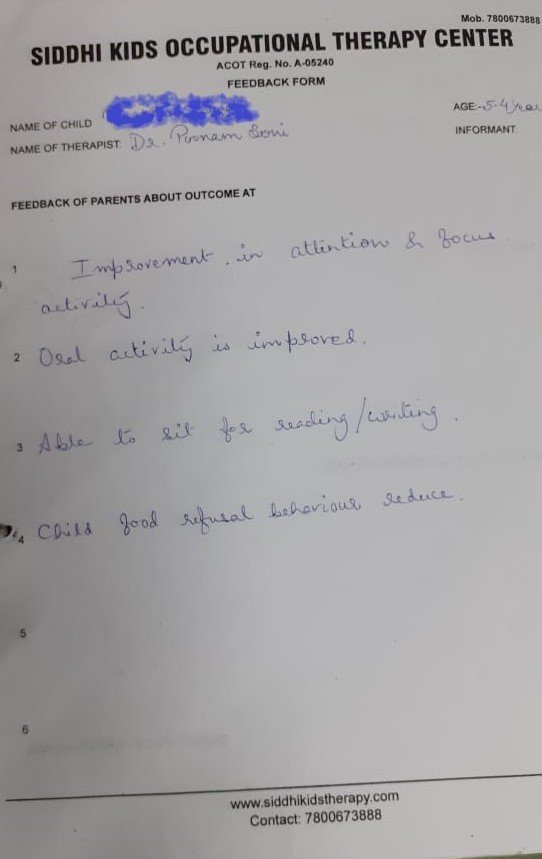 Mob. 7800673888
SIDDHI KIDS OCCUPATIONAL THERAPY CENTER
ACOT Reg. No. A-05240
FEEDBACK FORM
NAME OF CHILD
AGE:-5.4 year
NAME OF THERAPIST: Dr. Poonam Soni
INFORMANT:
FEEDBACK OF PARENTS ABOUT OUTCOME AT
1 Improvement in attention & focus
activity.
2 Oral activity is improved.
3 Able to sit for reading/writing.
4 Child food refusal behaviour reduce.
5
6
www.siddhikidstherapy.com
Contact: 7800673888